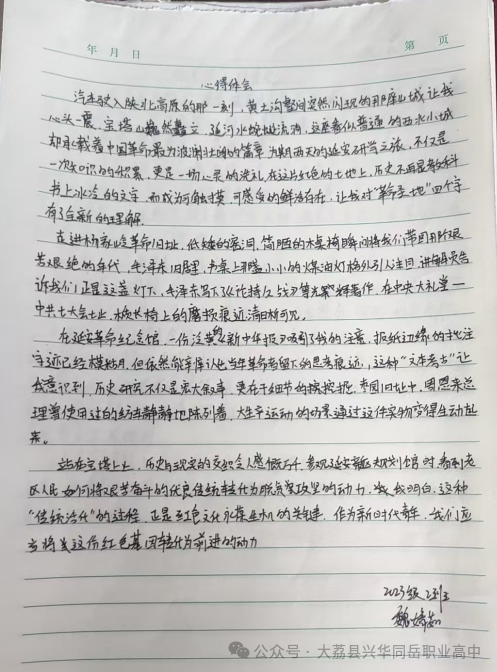 年 月 日 第 页
心得体会
汽车驶入陕北高原的那一刻，黄土沟壑间突然闪现的那座山城让我
心头一震，宝塔山巍然矗立，延河水蜿蜒流淌，这座看似普通的西北小城
却承载着中国革命最为波澜壮阔的篇章，为期两天的延安研学之旅，不仅是
一次知识的积累，更是一场心灵的洗礼，在这片红色的土地上，历史不再是教科
书上冰冷的文字，而成为可触摸、可感受的鲜活存在，让我对“革命圣地”四个字
有了全新的理解。
在进杨家岭革命旧址，低矮的窑洞，简陋的木桌椅瞬间将我们带回那段艰
苦卓绝的年代，毛泽东旧居里，桌上那盏小小的煤油灯格外引人注目，讲解员告
诉我们正是这盏灯下，毛泽东写下《论持久战》等光辉著作，在中央大礼堂——
中共七大会址，木质长椅上的磨损痕迹清晰可见。
在延安革命纪念馆，一份泛黄的《新中华报》吸引了我的注意，报纸边缘的批注
字迹已经模糊，但依然能辨认出当年革命者留下的思考痕迹，这种“文本考古”让
我意识到，历史研究不仅是宏大叙事，更在于细节的挖掘，枣园旧址中，周恩来总
理曾使用过的纺车静静地陈列着，大生产运动的场景通过这件实物变得生动起
来。
站在宝塔山上，历史与现实的交织令人感慨万千，参观延安新区规划馆时，看到老
区人民如何将艰苦奋斗的优良传统转化为脱贫攻坚的动力，我明白，这种
“传统活化”的过程，正是红色文化永葆生机的关键，作为新时代青年，我们应
当将这份红色基因转化为前进的动力
2023级2班
魏婧茹
公众号 · 大荔县兴华同岳职业高中